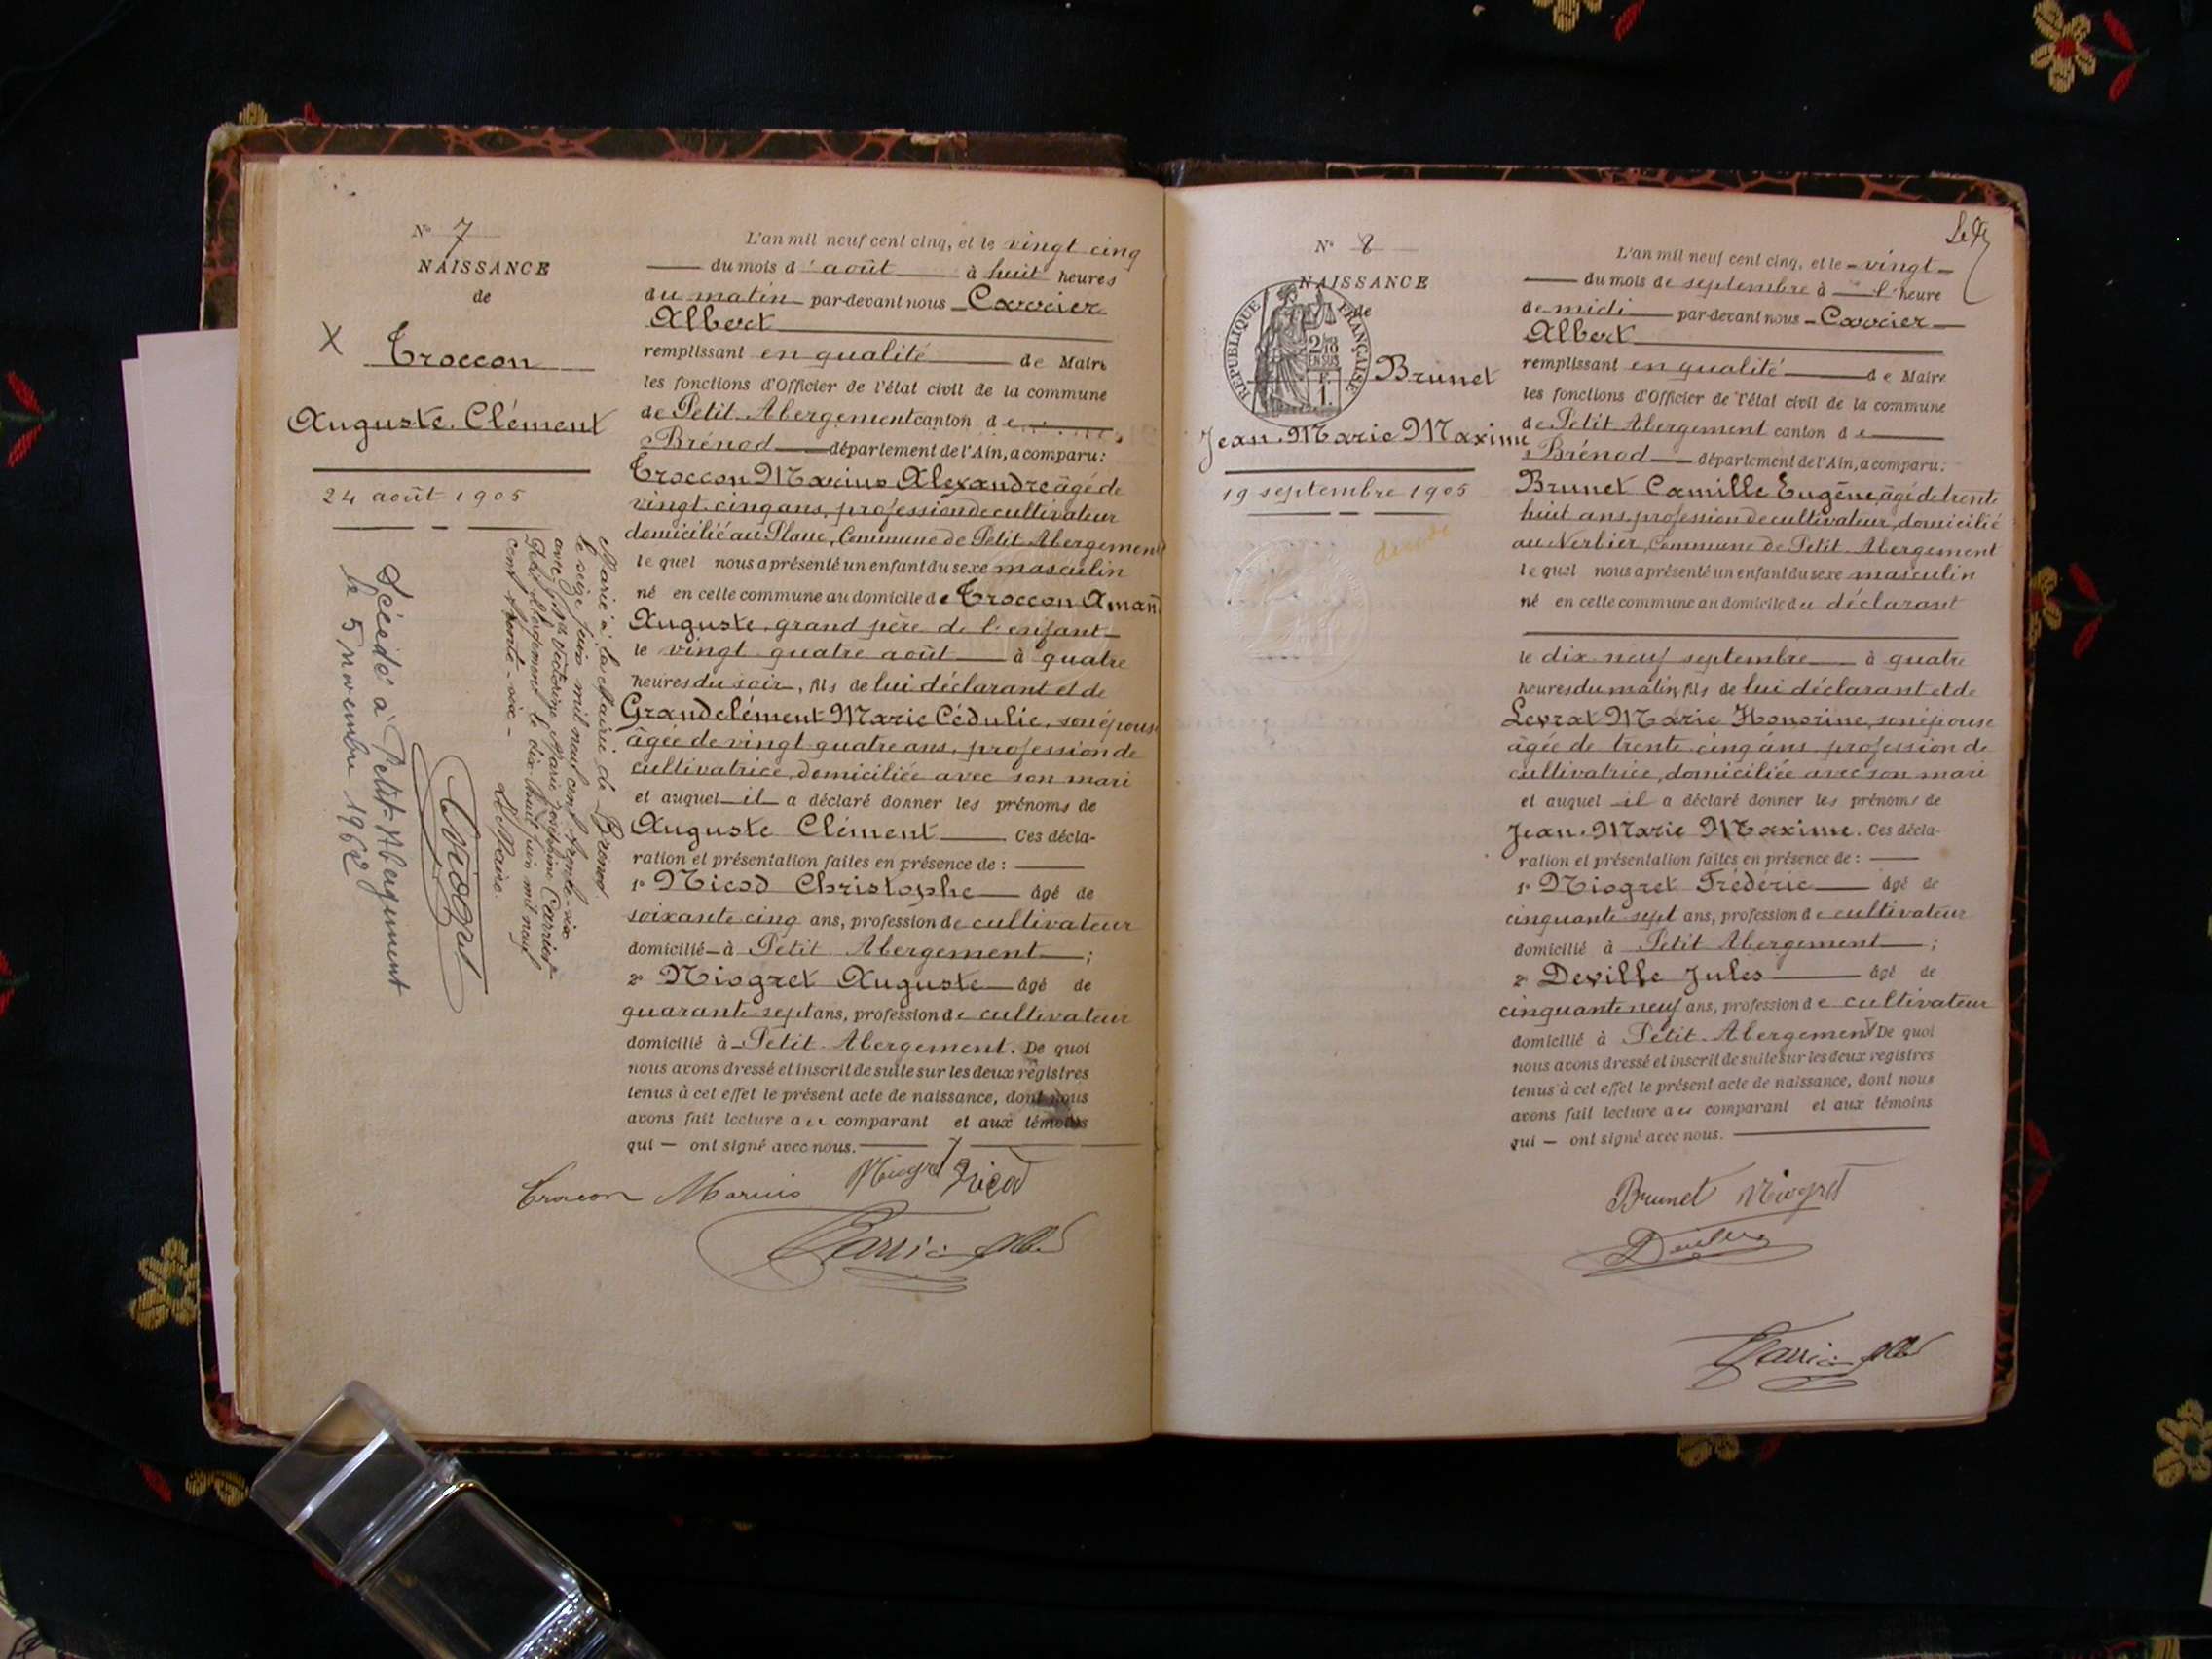 N° 7
NAISSANCE
de
X Croccon
Auguste Clément
24 août 1905
Marié à la Mairie de Brénod
le seize juin mil neuf cent trente-six
avec Marie Joséphine Carrier
Petit Abergement le dix huit juin mil neuf
cent trente-six -
Le Maire
Décédé à Petit-Abergement
le 5 novembre 1962
L'an mil neuf cent cinq, et le vingt cinq
du mois d'août à huit heures
du matin par-devant nous Carrier
Albert
remplissant en qualité de Maire
les fonctions d'Officier de l'état civil de la commune
de Petit Abergement canton de
Brénod département de l'Ain, a comparu:
Croccon Marius Alexandre âgé de
vingt cinq ans, profession de cultivateur
domicilié au Plane, Commune de Petit Abergement
lequel nous a présenté un enfant du sexe masculin
né en cette commune au domicile de Croccon Amand
Auguste, grand père de l'enfant
le vingt quatre août à quatre
heures du soir, fils de lui déclarant et de
Grandclément Marie Cédulie, son épouse
âgée de vingt quatre ans, profession de
cultivatrice, domiciliée avec son mari
et auquel il a déclaré donner les prénoms de
Auguste Clément Ces décla-
ration et présentation faites en présence de :
1° Nicod Christophe âgé de
soixante cinq ans, profession de cultivateur
domicilié à Petit Abergement ;
2° Niogret Auguste âgé de
quarante sept ans, profession de cultivateur
domicilié à Petit Abergement. De quoi
nous avons dressé et inscrit de suite sur les deux registres
tenus à cet effet le présent acte de naissance, dont nous
avons fait lecture au comparant et aux témoins
qui — ont signé avec nous.
Croccon Marius Niogret Nicod
Carrier Albert
N° 8
NAISSANCE
de
REPUBLIQUE FRANÇAISE
2/10
EN SUS
1 F.
Brunet
Jean Marie Maxime
19 septembre 1905
L'an mil neuf cent cinq, et le vingt
du mois de septembre à l'heure
de midi par-devant nous Carrier
Albert
remplissant en qualité de Maire
les fonctions d'Officier de l'état civil de la commune
de Petit Abergement canton de
Brénod département de l'Ain, a comparu:
Brunet Camille Eugène âgé de trente
huit ans, profession de cultivateur, domicilié
au Nerbier, Commune de Petit Abergement
lequel nous a présenté un enfant du sexe masculin
né en cette commune au domicile du déclarant
le dix neuf septembre à quatre
heures du matin, fils de lui déclarant et de
Levrat Marie Honorine, son épouse
âgée de trente cinq ans, profession de
cultivatrice, domiciliée avec son mari
et auquel il a déclaré donner les prénoms de
Jean Marie Maxime. Ces décla-
ration et présentation faites en présence de :
1° Niogret Frédéric âgé de
cinquante sept ans, profession de cultivateur
domicilié à Petit Abergement ;
2° Deville Jules âgé de
cinquante neuf ans, profession de cultivateur
domicilié à Petit Abergement De quoi
nous avons dressé et inscrit de suite sur les deux registres
tenus à cet effet le présent acte de naissance, dont nous
avons fait lecture au comparant et aux témoins
qui — ont signé avec nous.
Brunet Niogret
Deville
Carrier Albert